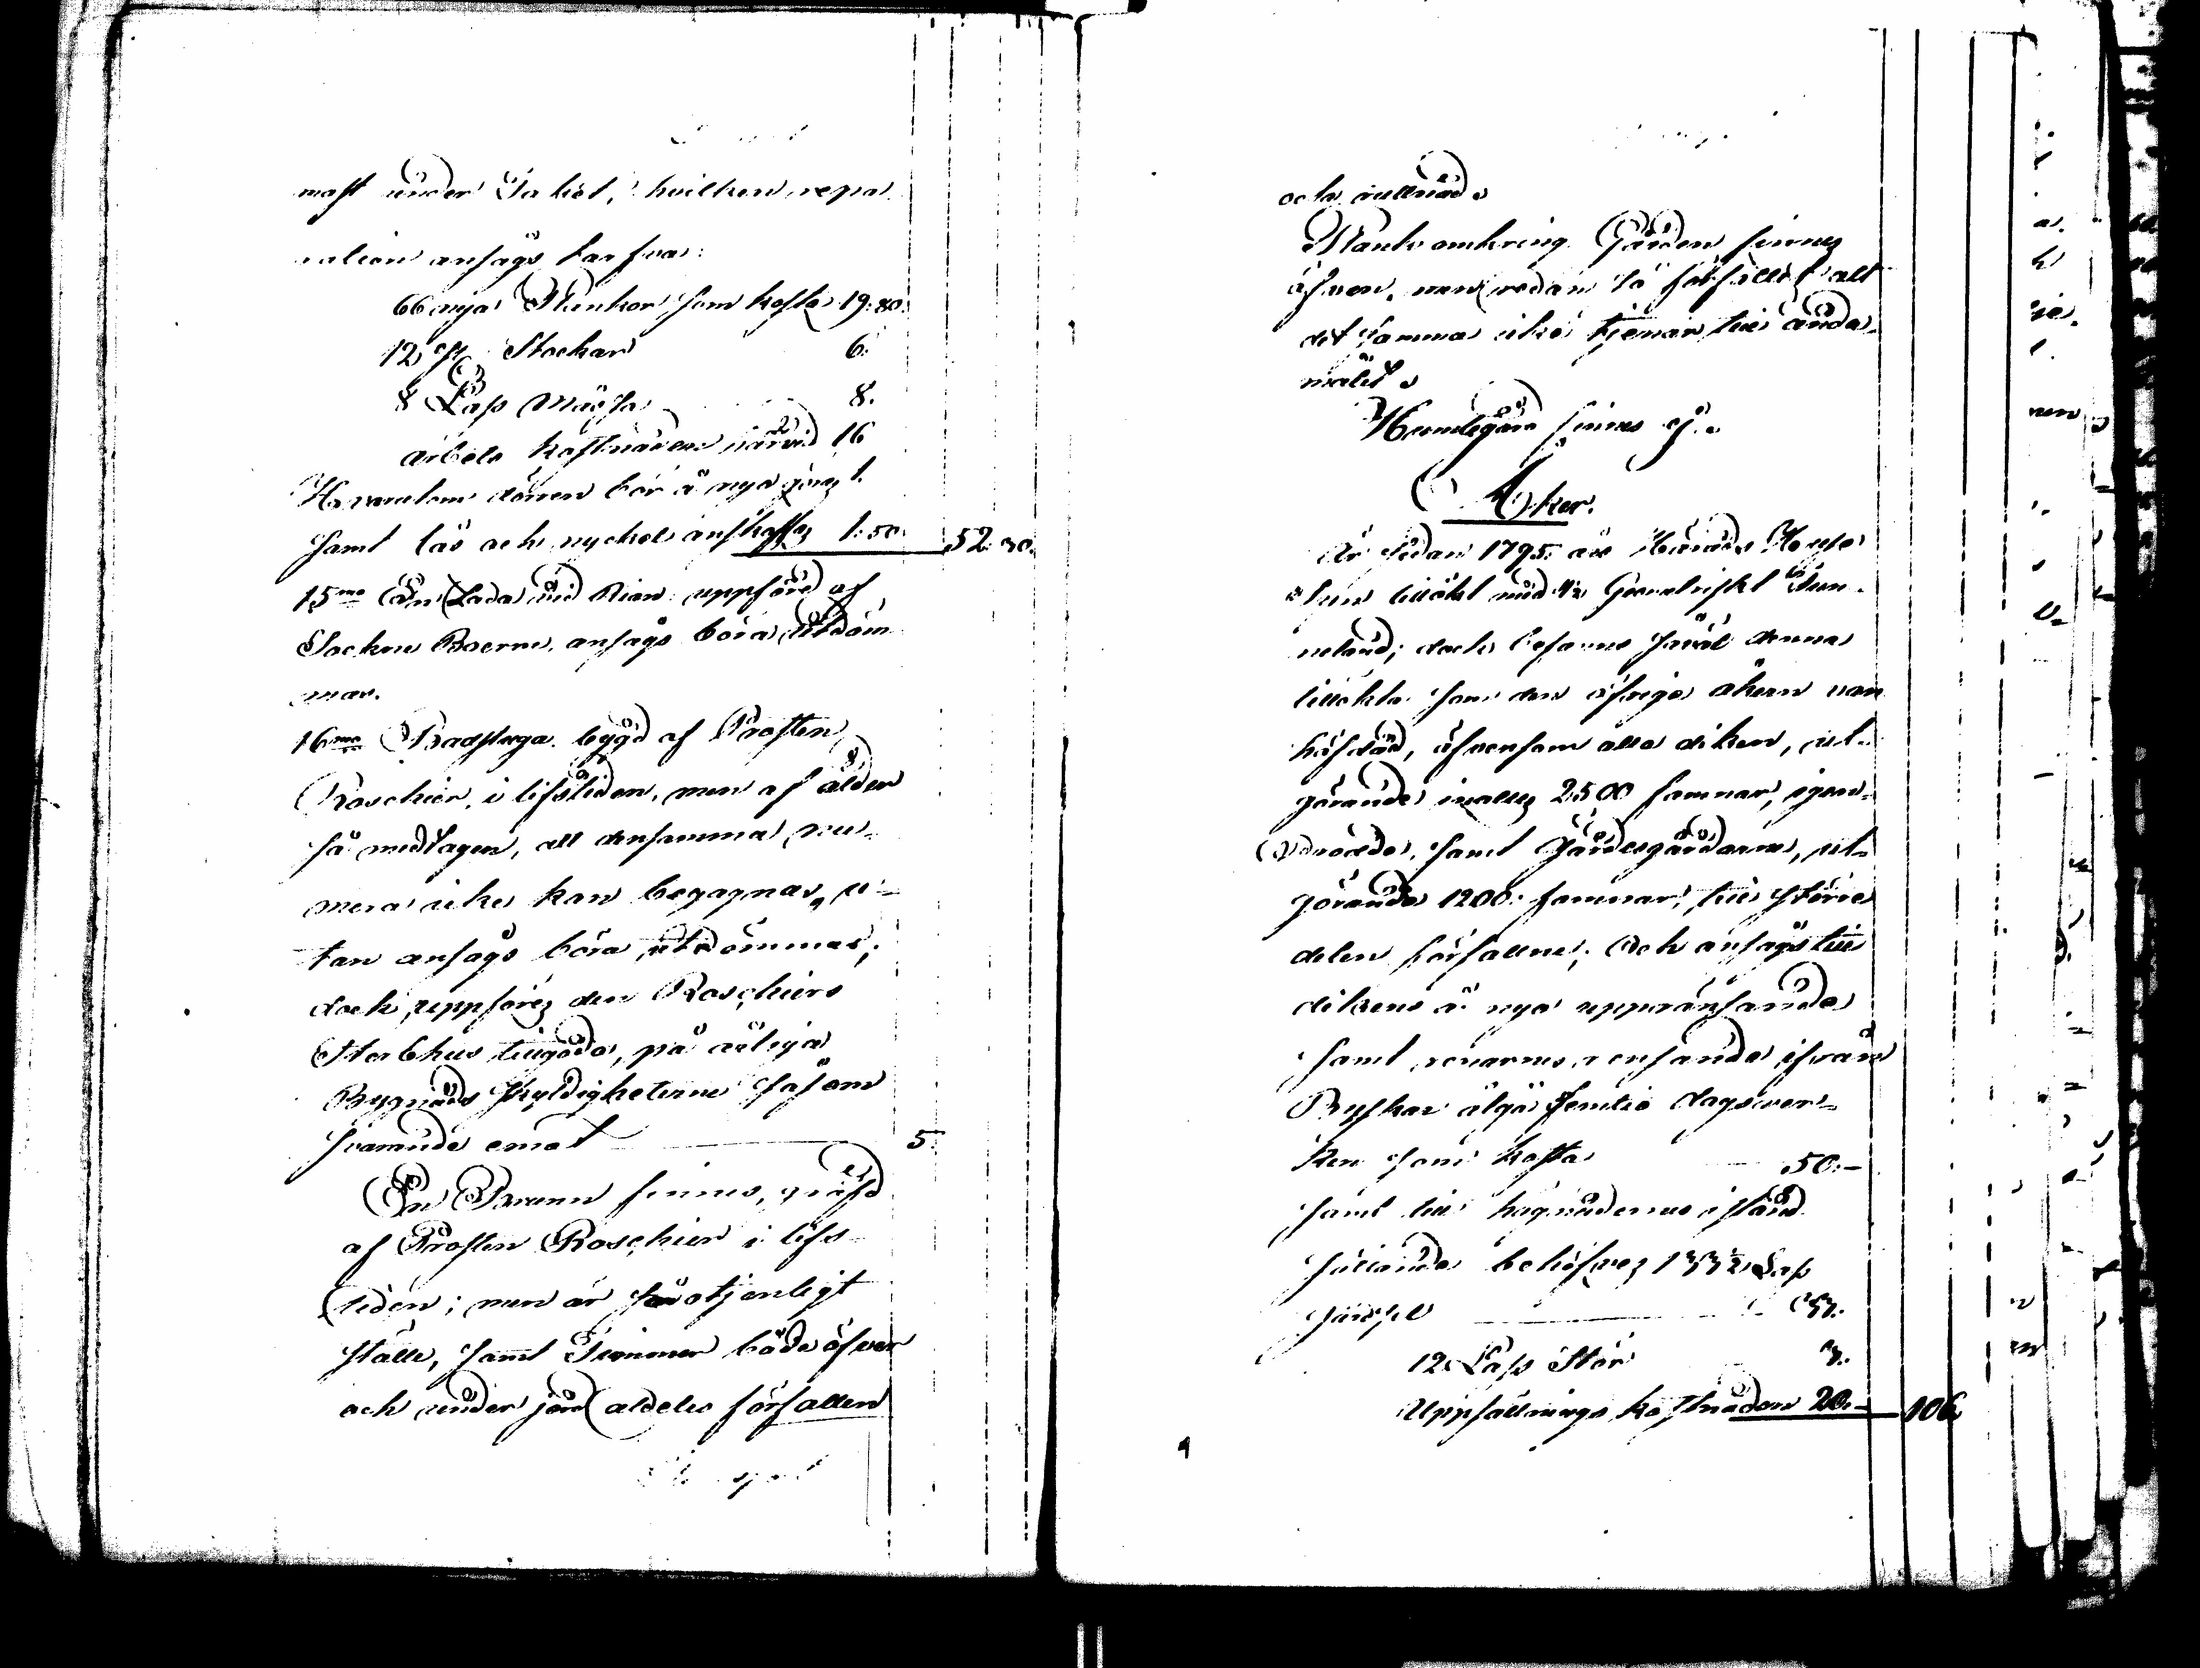 mast under Taket, hvilken repa
ration ansågs kosta:
66 nya Plankor som kosta 19:80.
12 st Stockar 6.
8 Lass Måssa 8.
arbets kostnaden härvid 16
Hvarutom dörren bör å nyo göras 1.
samt lås och nyckel anskaffas 1:50. 52:30.
15mo En Lada vid Rian uppförd af
Sockne Boerne, ansågs böra utdöm
mas.
16mo Badstuga bygd af Prosten
Roschier, i lifstiden, men af ålder
så medtagen, att densamma nu-
mera icke kan begagnas, u-
tan ansågs böra utdömmas;
dock uppföres den Roschiers
Sterbhus tillgodo, på årliga
Bygnads skyldigheterne såsom
svarande emot 5.
En Brunn finnes, gräfd
af Prosten Roschier i lifs
tiden; men är på otjenligt
ställe, samt Timmer både öfver
och under jord aldeles förfallen
och rutnad.
Stank omkring Gården finnes
äfven, men redan så förfallet att
det samma icke tjenar till ända-
målet.
Humlegård finnes ej.
Åker.
Är sedan 1795 års Härads
tillökt med 4½ Geometriskt Tun-
neland; doch befanns såväl denna
tillökta som den öfriga åkern van
häfdad, äfvensom alla diken, ut-
görande inalles 2500 famnar, igen-
samt Gärdesgårdarne, ut-
görande 1200 famnar, till större
delen förfallne; Och ansågs till
dikens å nyo uppränsande
samt renarnes rensande ifrån
Byskar åtgå femtio dagsver-
ken som kosta 50:-
samt till hägnadernes i stånd
sättande behöfves 133½ Lass
Gärdsel
12 Lass Stör
Uppsättnings kostnaden 20:- 106